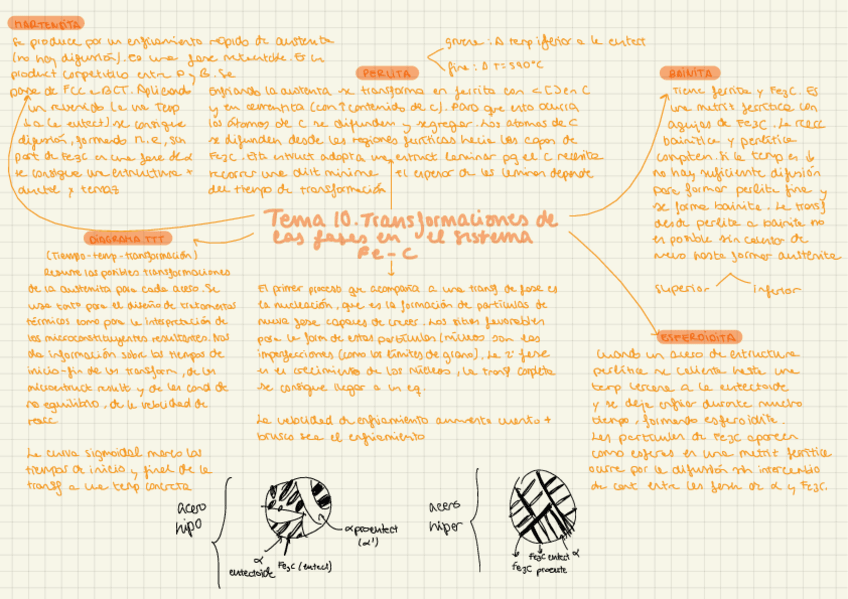 MARTENSITA
Se produce por un enfriamiento rápido de austenita
(no hay difusión). Es una fase metaestable. Es un
product competitivo entre P y B. Se
pasa de FCC a BCT. Aplicando
un revenido (a una temp
↓ a la eutect) se consigue
difusión, formando M.R, son
part de Fe3C en una fase de α
se consigue una estructura +
ductil y tenaz
PERLITA
gruesa: Δ temp inferior a la eutect
fina: Δ T = 540°C
Enfriando la austenita se transforma en ferrita con < [] en C
y en cementita (con ↑ contenido de C). Para que esto ocurra
los átomos de C se difunden y segregar. Los átomos de C
se difunden desde las regiones ferríticas hacia las capas de
Fe3C. Esta estruct adopta una estruct laminar pq el C necesita
recorrer una dist mínima el espesor de las láminas depende
del tiempo de transformación
BAINITA
Tiene ferrita y Fe3C. Es
una matriz ferrítica con
agujas de Fe3C. La reacc
bainítica y perlítica
compiten. Si la temp es ↓
no hay suficiente difusión
para formar perlita fina y
se forma bainita. La transf
desde perlita a bainita no
es posible sin calentar de
nuevo hasta formar austenita
superior
inferior
Tema 10. Transformaciones de
las fases en el sistema
Fe-C
DIAGRAMA TTT
(Tiempo-temp-transformación)
Resume las posibles transformaciones
de la austenita para cada acero. Se
usa tanto para el diseño de tratamientos
térmicos como para la interpretación de
los microconstituyentes resultantes. Nos
da información sobre los tiempos de
inicio-fin de las transform, de las
microestruct result y de las cond de
no equilibrio, de la velocidad de
reacc
La curva sigmoidal marca los
tiempos de inicio y final de la
transf a una temp concreta
El primer proceso que acompaña a una transf de fase es
la nucleación, que es la formación de partículas de
nueva fase capaces de crecer. Los sitios favorables
para la form de estas partículas (núcleos son las
imperfecciones (como los límites de grano). La 2ª fase
es el crecimiento de los núcleos, la transf completa
se consigue llegar a un eq.
La velocidad de enfriamiento aumenta cuanto +
brusco sea el enfriamiento
ESFEROIDITA
Cuando un acero de estructura
perlítica se calienta hasta una
temp cercana a la eutectoide
y se deja enfriar durante mucho
tiempo, formando esferoidita.
Las partículas de Fe3C aparecen
como esferas en una matriz ferrítica
ocurre por la difusión sin intercambio
de cont entre las fases de α y Fe3C.
acero
hipo
α
eutectoide
Fe3C (eutect)
α proeutect
(α')
acero
hiper
Fe3C eutect
α
Fe3C
proeute